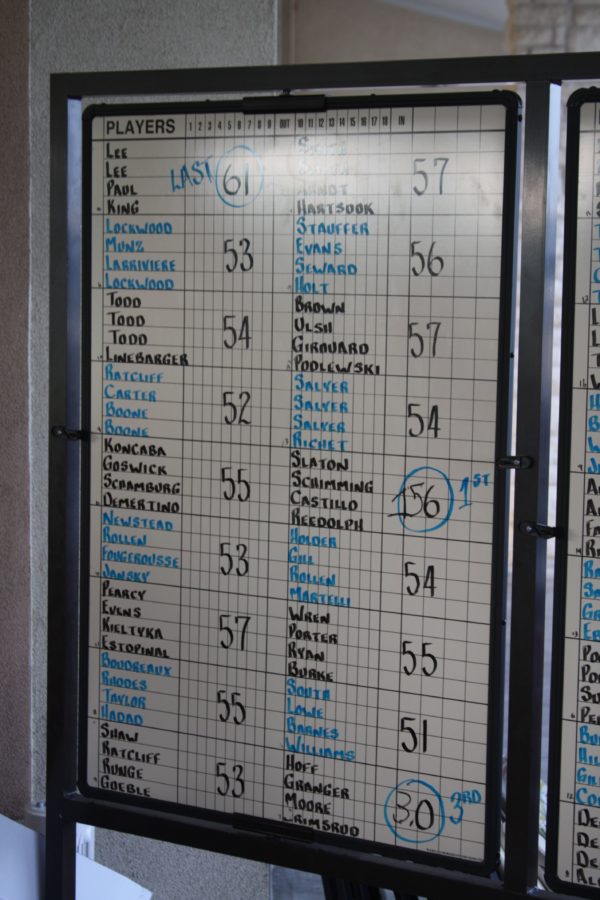 PLAYERS 1 2 3 4 5 6 7 8 9 OUT 10 11 12 13 14 15 16 17 18 IN
LEE
LEE
PAUL
KING
LAST 61
LOCKWOOD
MUNZ
LARRIVIERE
LOCKWOOD
53
TODD
TODD
TODD
LINEBARGER
54
RATCLIFF
CARTER
BOONE
BOONE
52
KONCABA
GOSWICK
SCHAMBURG
DEMERTINO
55
NEWSTEAD
ROLLEN
FOUGEROUSSE
JANSKY
53
PEARCY
EVENS
KIELTYKA
ESTOPINAL
57
BOUDREAUX
RHODES
TAYLOR
HADAD
55
SHAW
RATCLIFF
RUNGE
GOEBLE
53
HARTSOOK
57
STAUFFER
EVANS
SEWARD
HOLT
56
BROWN
ULSH
GIROUARD
PODLEWSKI
57
SALYER
SALYER
SALYER
RICHET
54
SLATON
SCHIMMING
CASTILLO
REEDOLPH
156 1ST
HOLDER
GILL
ROLLEN
MARTELLI
54
WREN
PORTER
RYAN
BURKE
55
SOUTH
LOWE
BARNES
WILLIAMS
51
HOFF
GRANGER
MOORE
GRIMSRUD
3RD